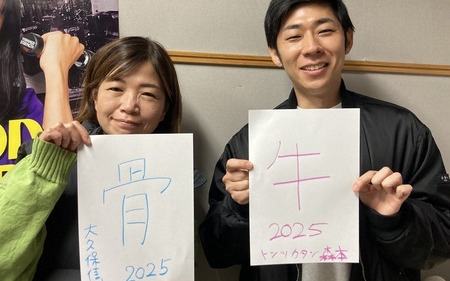 骨
大久保佳
2025
牛
2025
トンツカタン 森本